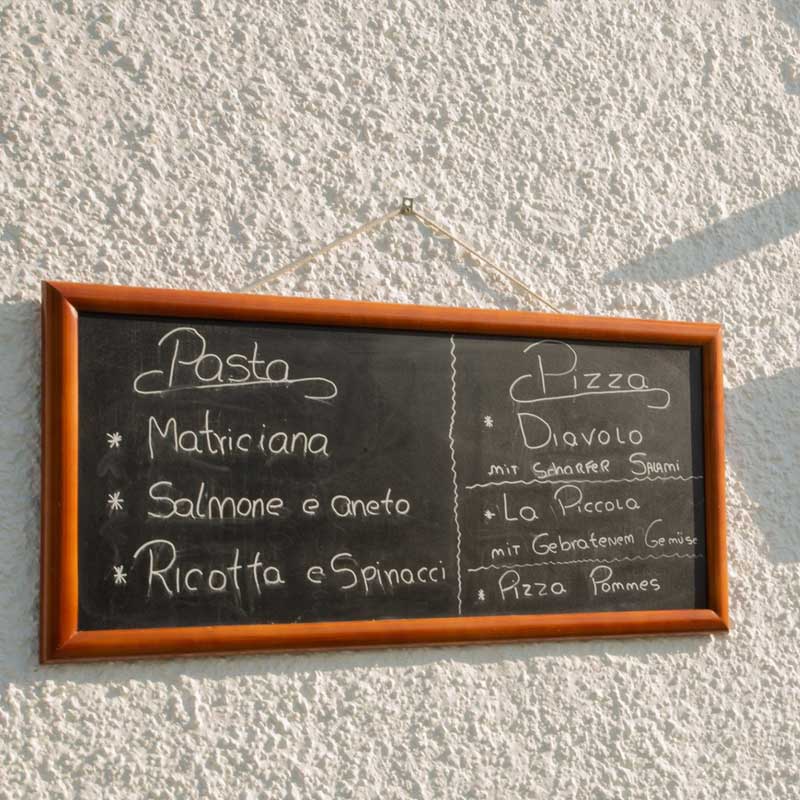 Pasta
* Matriciana
* Salmone e aneto
* Ricotta e Spinacci
Pizza
* Diavolo
mit scharfer Salami
* La Piccola
mit Gebratenem Gemüse
* Pizza Pommes